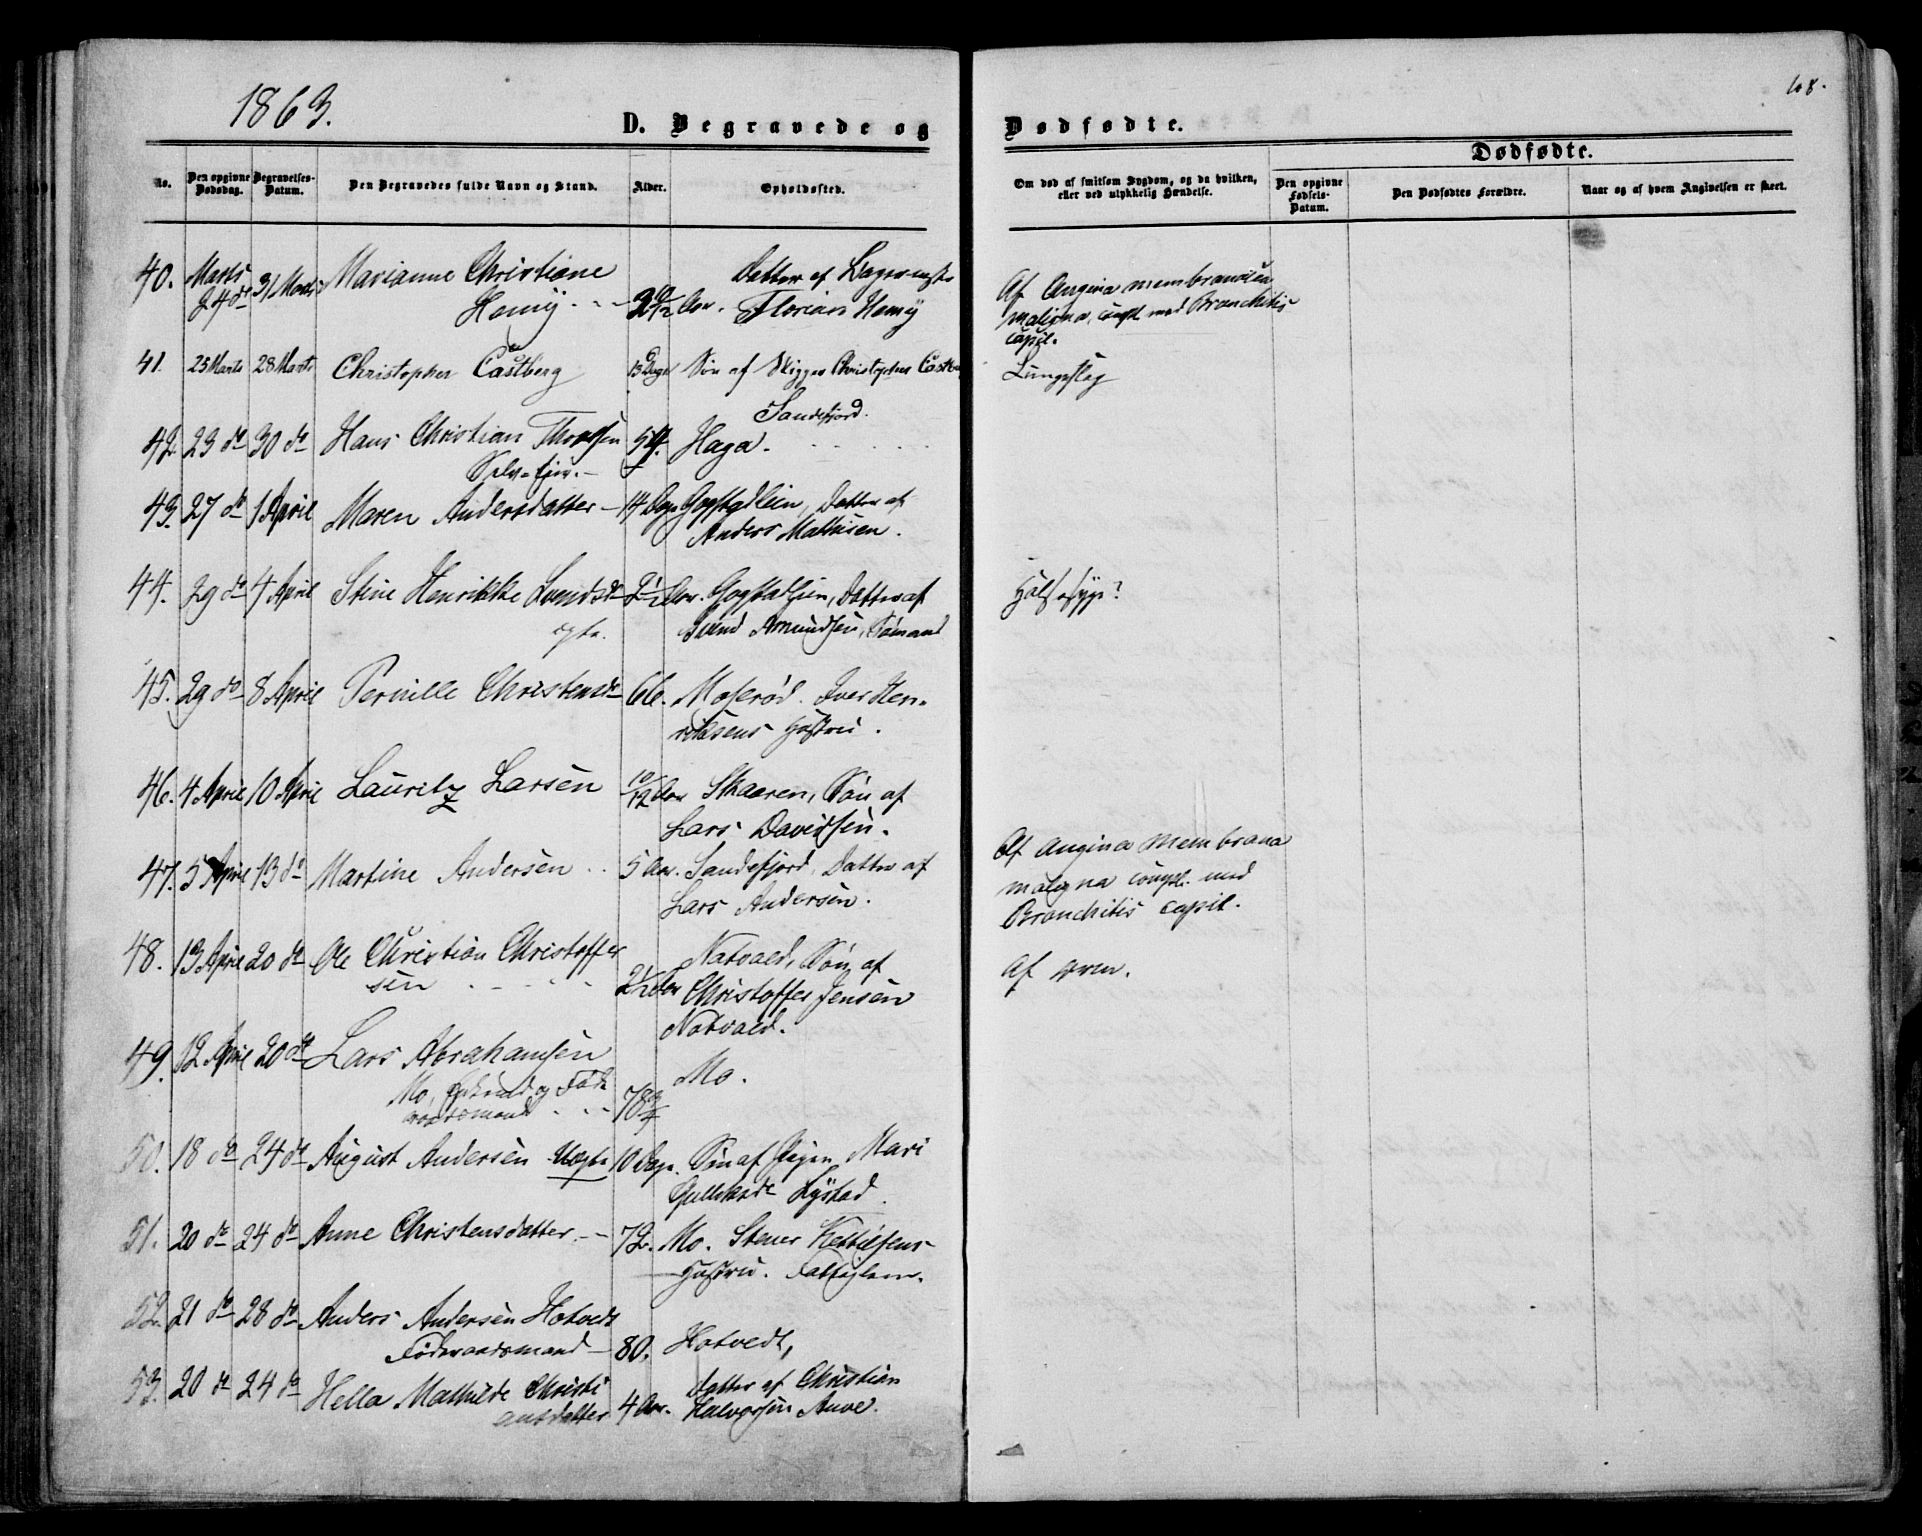 1863.
68.
D. Begravede og Dødfødte.
Dødfødte.
No.
Den opgivne Dødsdag.
Begravelses-Datum.
Den Begravedes fulde Navn og Stand.
Alder.
Opholdssted.
Om død af smitsom Sygdom, og da hvilken, eller ved ulykkelig Hændelse.
Den opgivne Fødsels-Datum.
Den Dødfødtes Forældre.
Naar og af hvem Angivelsen er skeet.
40. Marts 24 de 31 Marts Marianne Christiane Datter af
Florian Af Angina membranosa
maligna, compl. med Bronchitis
capil.
41. 25 Marts 28 Marts Christopher Castberg 13 Dage Søn af Skipper Christopher Castberg Lungeslag
Sandefjord.
42. 23 do 30 do Hans Christian Haga.
Selveier.
43. 27 do 1 April Maren Andersdatter 14 Dage Datter af
Anders Mathisen.
44. 29 do 4 April Stine Henrikke Svends 2 1/2 Aar. Datter af Halssyge?
Svend Amundsen, Sømand
45. 29 do 8 April Pernille Christensd 66. Moserød. Iver Hen-
riksens Hustru.
46. 4 April 10 April Lauritz Larsen 10/12 Aar Skaaren, Søn af
Lars Davidsen.
47. 5 April 13 do Martine Andersen 5 Aar. Sandefjord, Datter af Af Angina Membrana
Lars Andersen. maligna compl. med
Bronchitis capil.
48. 13 April 20 do Ole Christian Christoffer Natvald, Søn af Af
sen 2 1/2 Aar Christoffer Jensen
Natvald.
49. 12 April 20 do Lars Abrahamsen
Mo, og Føde Mo.
raadsmand 78
50. 18 do 24 do August Andersen Uægte 10 Dage. Søn af Pigen Mari
Lystad
51. 20 do 24 do Anne Christensdatter 72. Mo. Stener
Hustru. Fattiglem.
52. 21 do 28 do Anders Andersen Hotvedt
Føderaadsmand 80. Hotvedt,
53. 20 do 24 do Hella Mathilde Christi Datter af Christian
ansdatter 4 Aar. Halvorsen